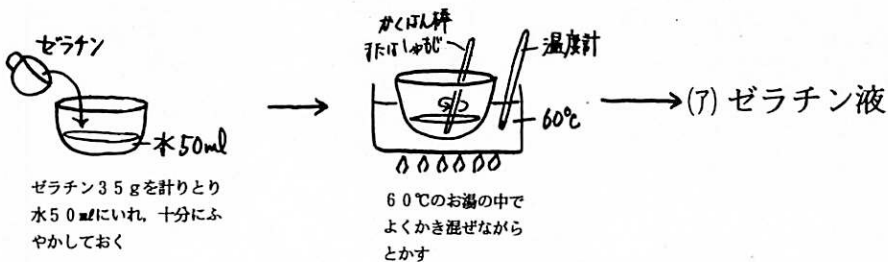 ゼラチン
水50ml
ゼラチン35gを計りとり
水50mlにいれ，十分にふ
やかしておく
かくはん棒
またはしゃもじ
温度計
60℃
60℃のお湯の中で
よくかき混ぜながら
とかす
(ア) ゼラチン液